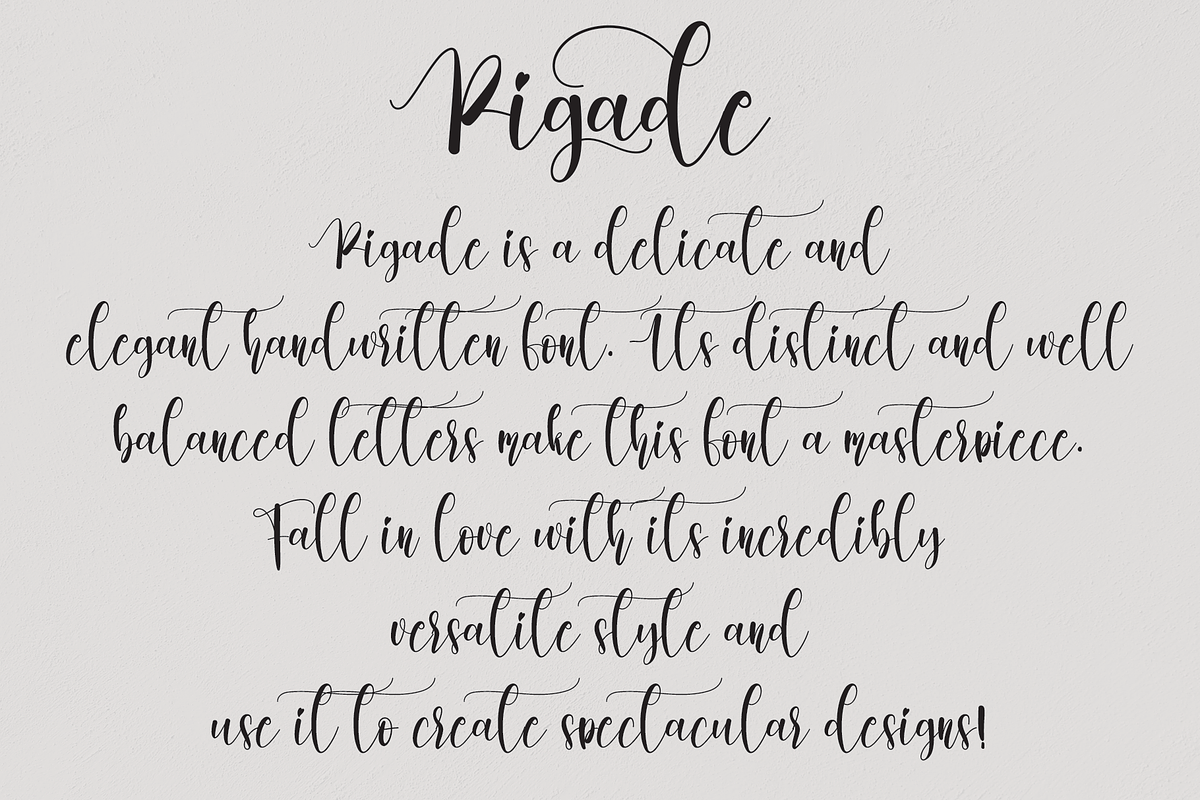 Rigade
Rigade is a delicate and
elegant handwritten font. Its distinct and well
balanced letters make this font a masterpiece.
Fall in love with its incredibly
versatile style and
use it to create spectacular designs!